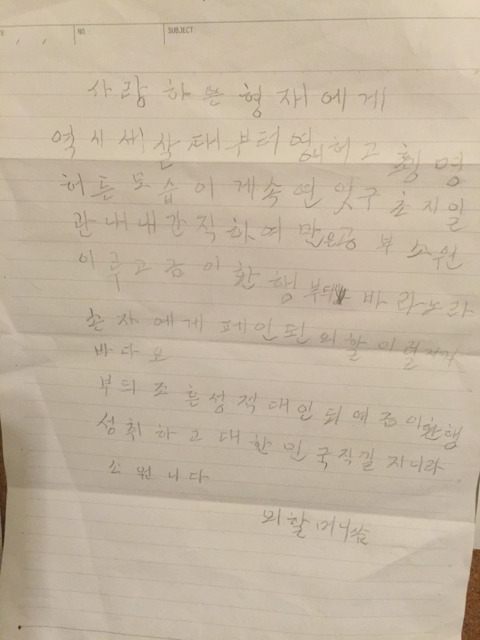 NO.
SUBJECT
사랑하는 형재에게
역시 써 살때부터 영니하고 횡명
허든 모습이 게속 연잇구 초지일
관 내내 간직하여 만공부 소원
이루고 금이환행 부데 바라노라
손자에게 페인된 외할이
바다요
부듸 조흔성적 대인되여 금이환행
성취하고 대한민국 직길 자니라
소원니다
외할머니씀